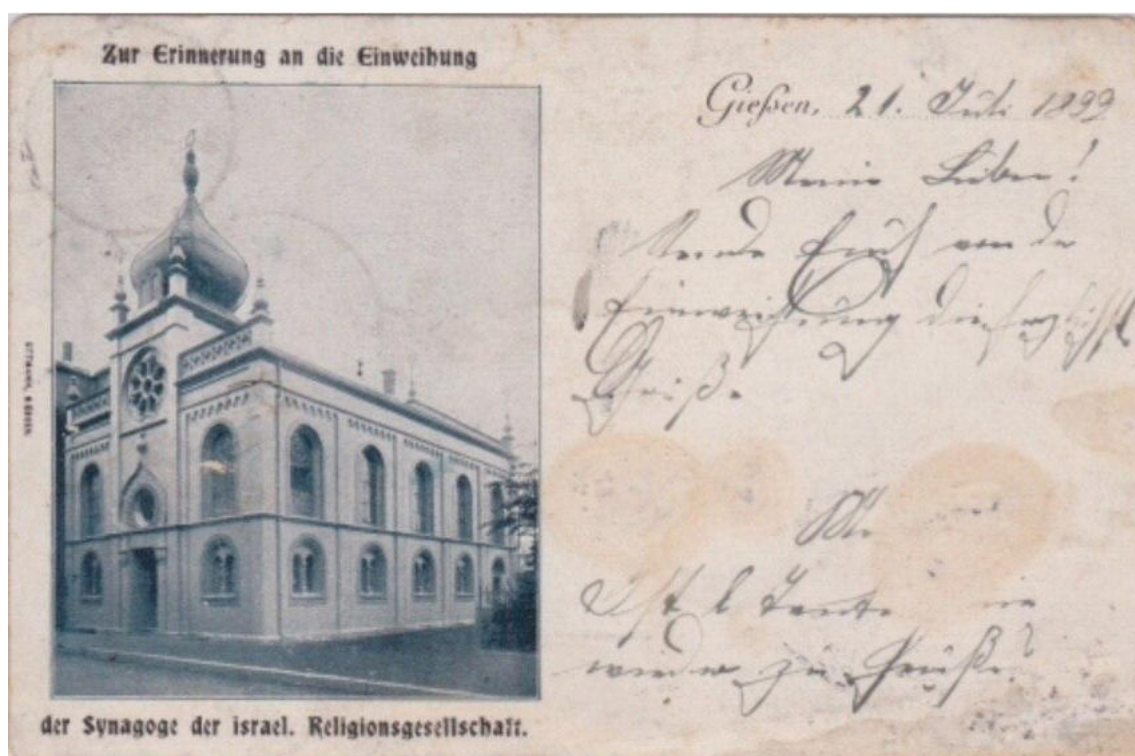 Zur Erinnerung an die Einweihung
der Synagoge der israel. Religionsgesellschaft.
Gießen, 21. Juli 1899
Meine Lieben!
Sende Euch von der
Einweihung die
Grüße.
l Tante
wieder zu Hause?